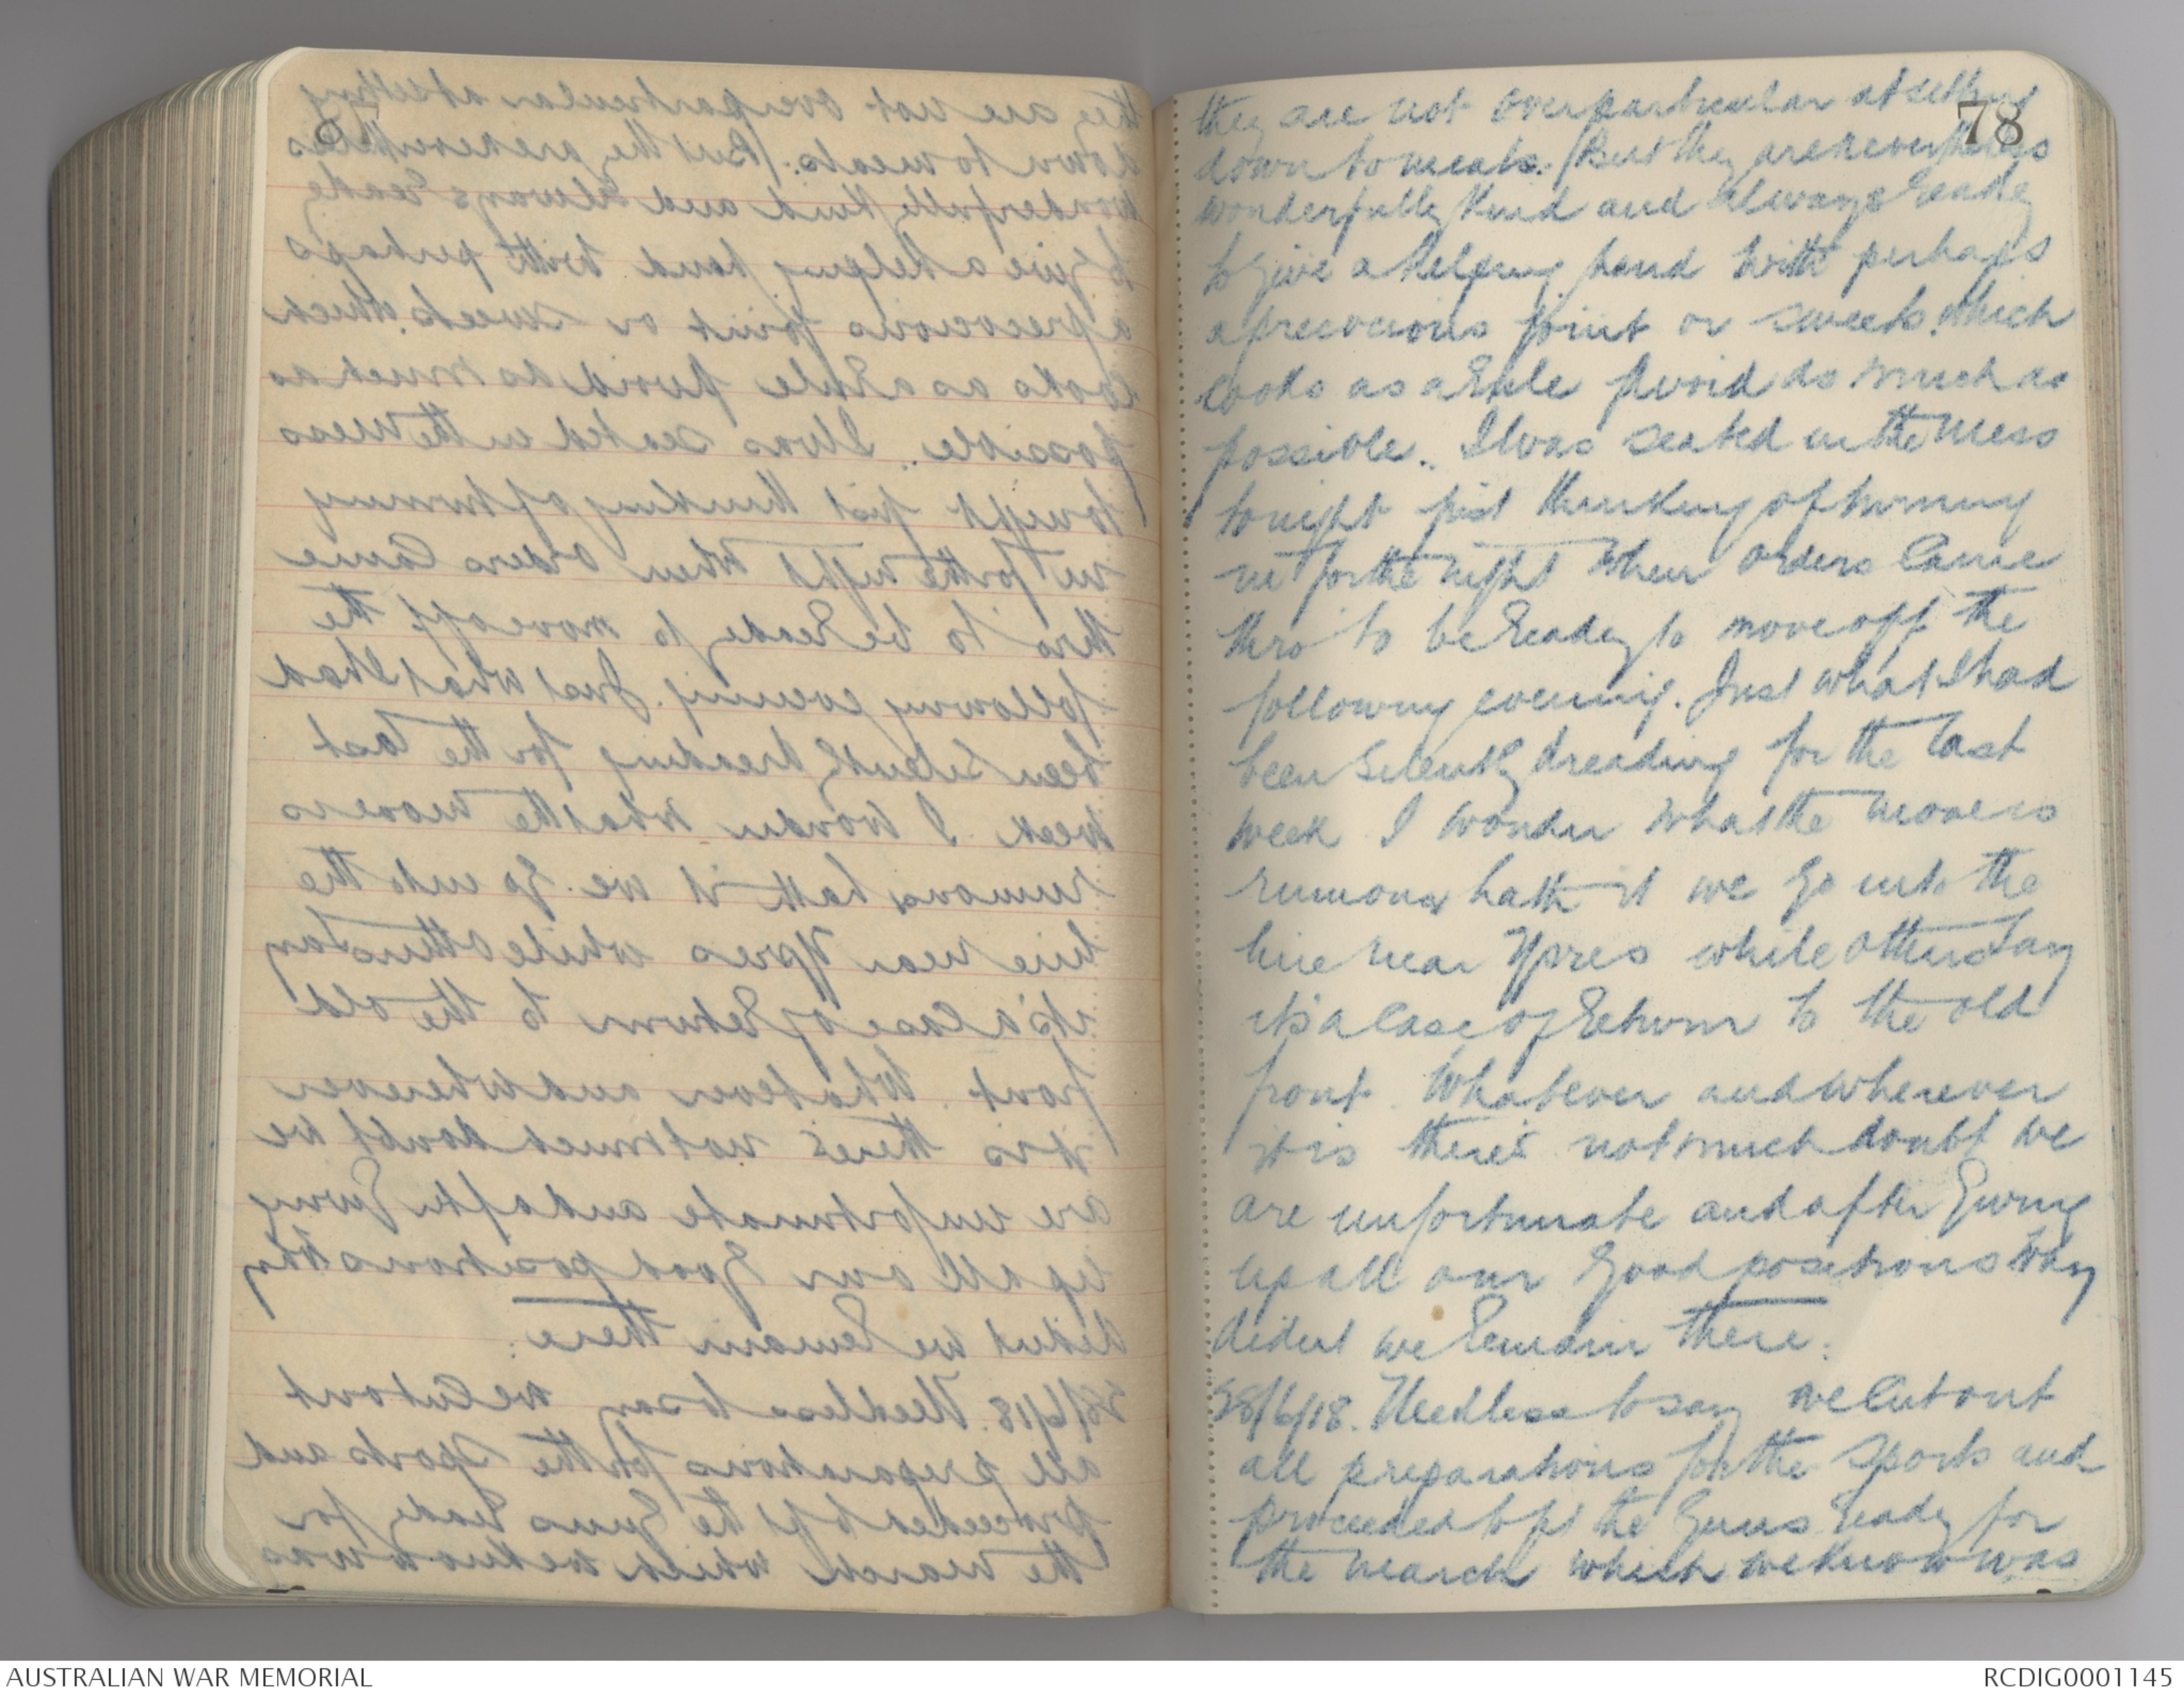 78
they are not overparticular at setting
down to meals. (But they are nevertheless
wonderfully kind and always ready
to give a helping hand with perhaps
a precocious joint or sweets. which
cooks as a rule avoid as much as
possible.. I was seated in the mess
tonight just thinking of turning
in for the night when orders came
thro' to be ready to move off the
following evening. Just what I had
been silently dreading for the last
week I wonder what the move is
rumour hath it we go into the
line near Ypres while others say
it's a case of return to the old
front. Whatever and wherever
it is there's not much doubt we
are unfortunate and after giving
up all our good positions why
didnt we remain there.
28/6/18. Needless to say we cut out
all preparations for the sports and
proceeded to get the guns ready for
the march which we know was
AUSTRALIAN WAR MEMORIAL
RCDIG0001145